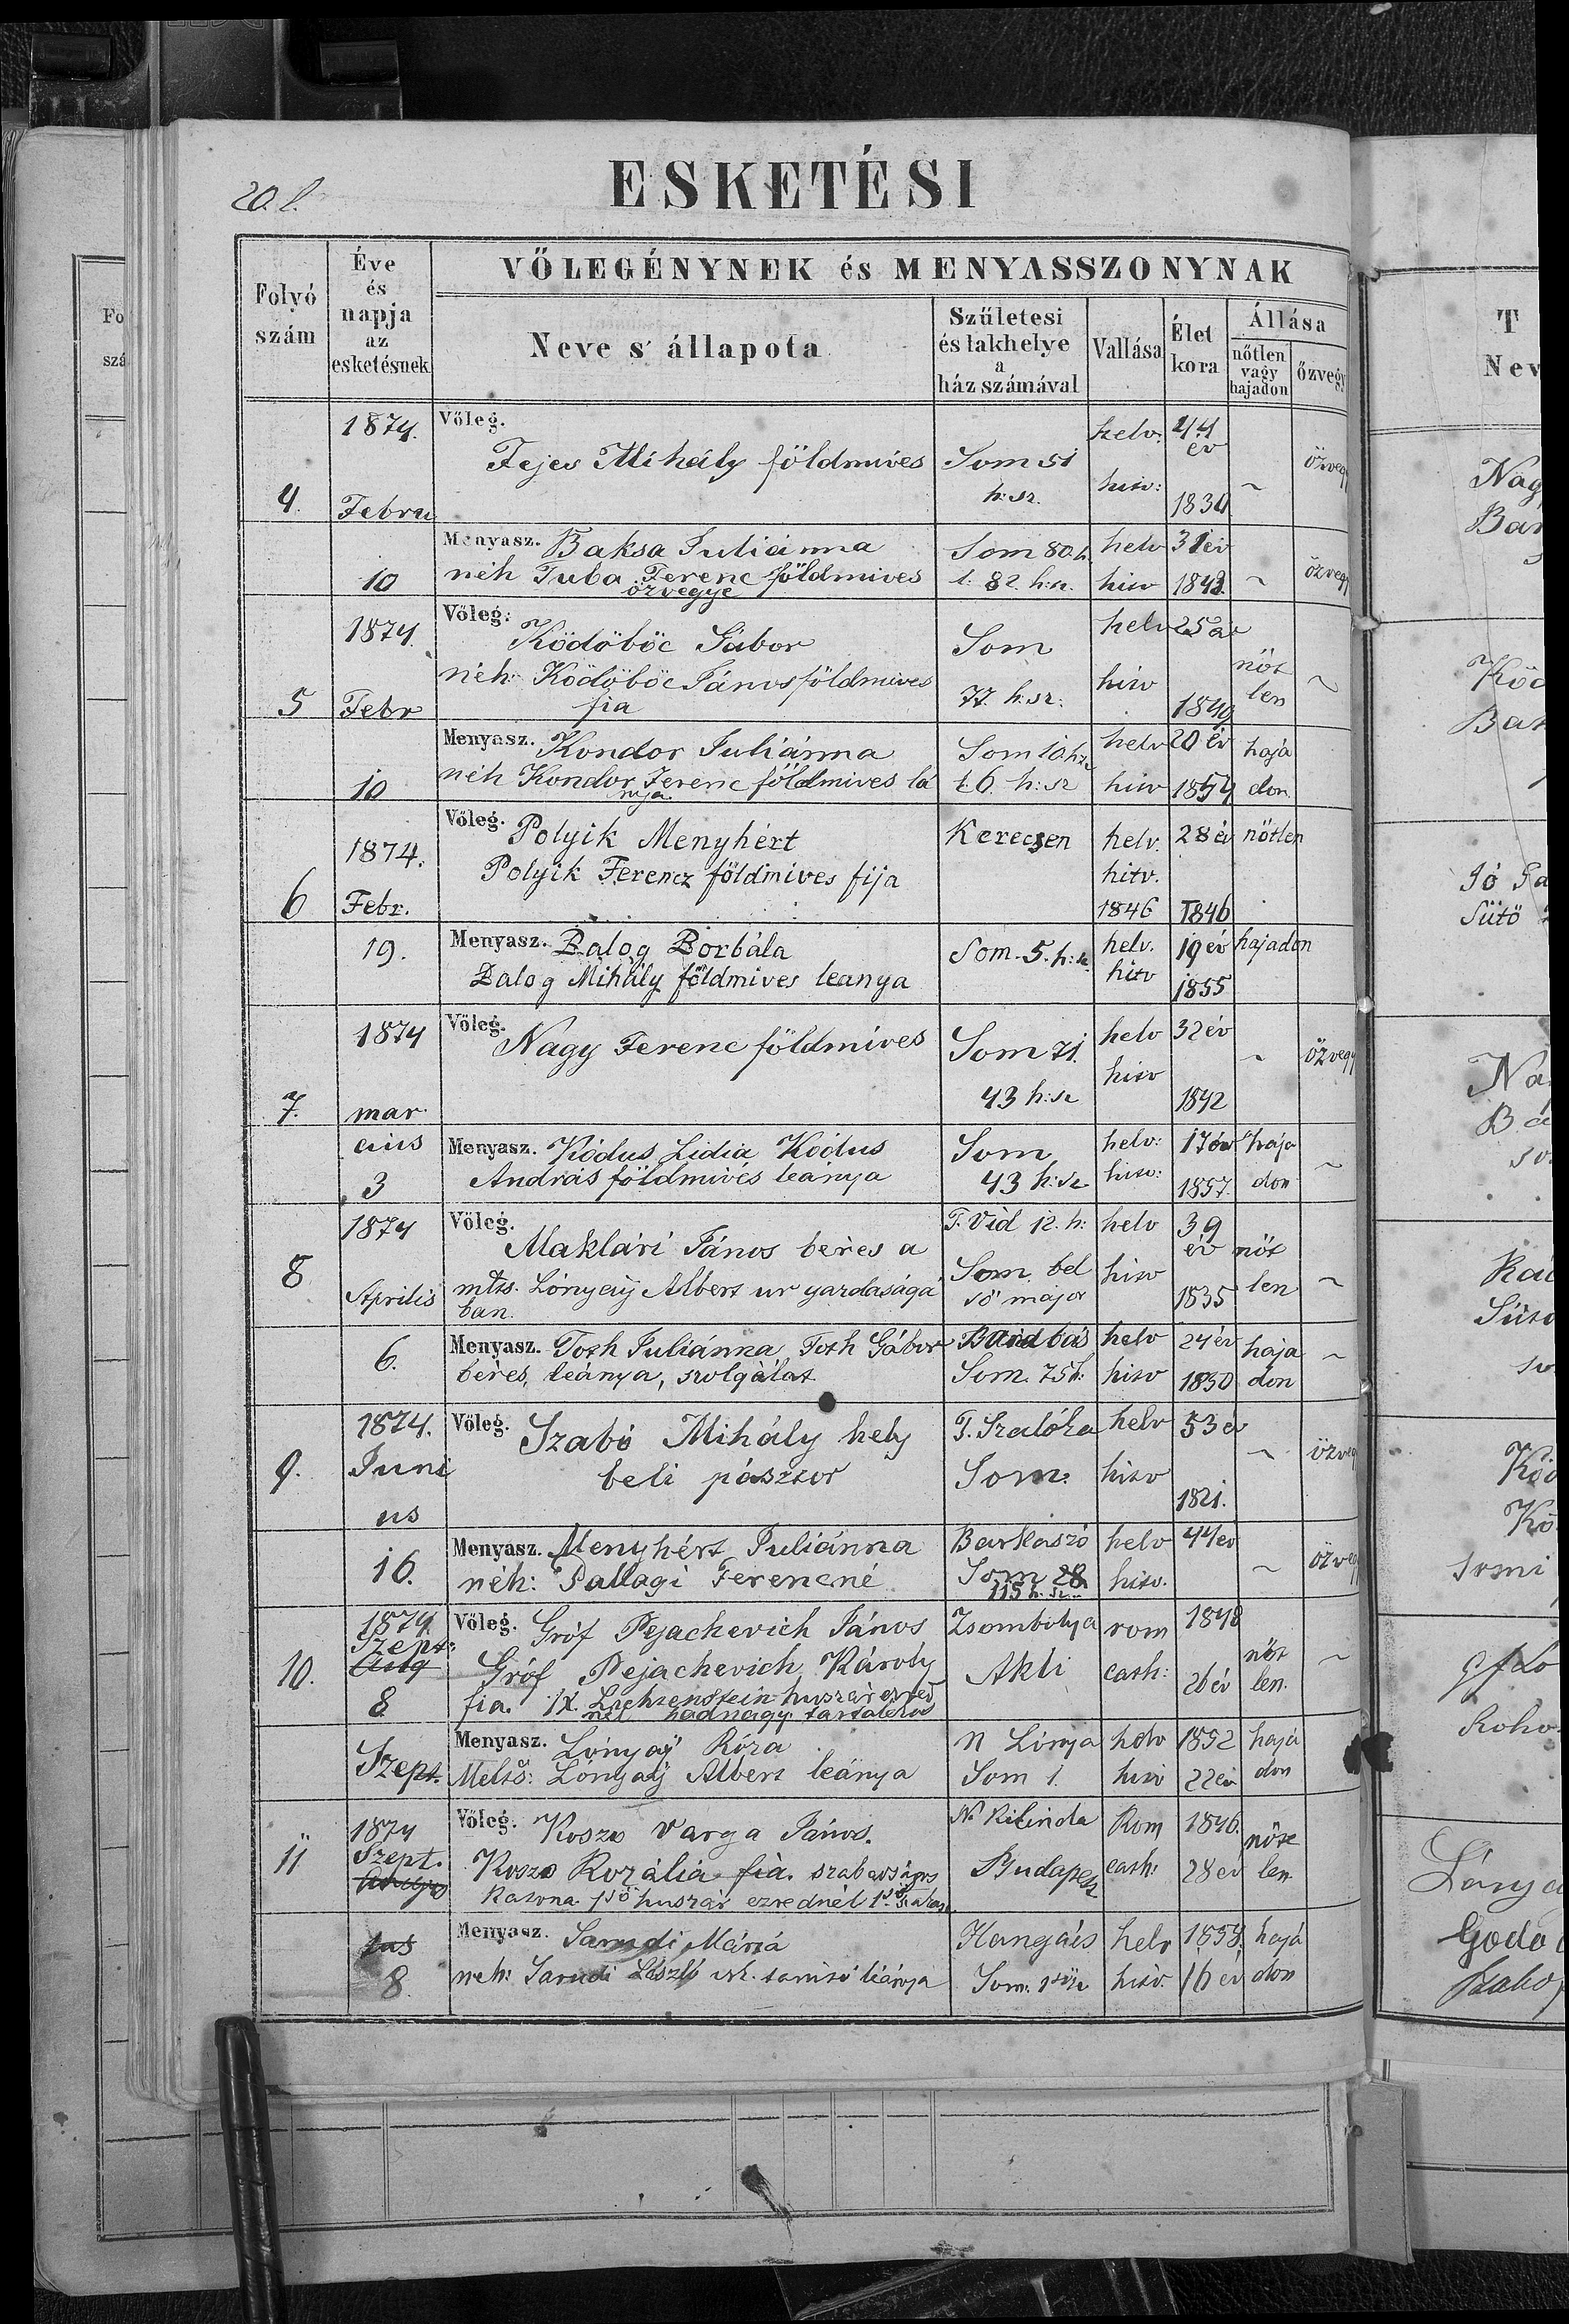 20. l.
ESKETÉSI
Folyó szám
Éve és napja az esketésnek
VŐLEGÉNYNEK és MENYASSZONYNAK
Neve s' állapota
Születesi és lakhelye a ház számával
Vallása
Élet kora
Állása
nőtlen vagy hajadon
őzvegy
4.
1874. Febru 10
Vőleg.
Fejes Mihály földmíves
Som 51 h: sz.
helv: hitv:
44 év 1830
~
özvegy
Menyasz. Baksa Juliánna
néh Tuba Ferenc földmives
özvegye
Som 80. h.
l: 82. h: sz.
helv hitv
31 év 1843.
~
özvegy
5
1874. Febr 10
Vőleg:
Ködöböc Gábor
néh: Ködöböc János földmives
fia
Som
77. h. sz:
helv hitv
25 év 1849
nőt len
~
Menyasz. Kondor Juliánna
néh Kondor Ferenc földmives lá
nya
Som 10. h sz
l: 6. h: sz
helv hitv
20 év 1854
hajá don.
6
1874. Febr. 19.
Vőleg. Polyik Menyhért
Polyik Ferencz földmives fija
Kerecsen
helv. hitv. 1846
28 év 1846
nőtlen
Menyasz. Balog Borbála
Balog Mihály földmives leanya
Som. 5. h: sz.
helv. hitv
19 év 1855
hajadon
7.
1874 mar cius 3
Vőleg. Nagy Ferenc földmíves
Som 71.
43 h: sz
helv hitv
32 év 1842
~
özvegy
Menyasz. Kódus Lidia Kódus
András földmivés leánya
Som
43 h: sz
helv: hitv:
17 év 1857.
haja don
~
8
1874 Aprilis 6.
Vőleg.
Maklári János béres a
mlts. Lónyaÿ Albert ur gazdaságá
ban.
T. Vid 12. h:
Som bel
ső major
helv hitv
39 év 1835
nőt len
~
Menyasz. Toth Juliánna Toth Gábor
béres, leánya, szolgálat
Som. 75 h:
helv hitv
24 év 1850
haja don
~
9.
1874. Juni us 16.
Vőleg. Szabó Mihály hely
beli pásztor
T. Szalóka
Som.
helv hitv
53 év 1821.
~
özvegy
Menyasz. Menyhért Juliánna
néh: Pallagi Ferencné
Barkaszó
Som 28
115 h. sz.
helv hitv.
44 év
~
özvegy
10.
1874. Szept: Aug 8 Szept.
Vőleg. Gróf Pejachevich János
Gróf Pejachevich Károly
fia. IX. Liechtenstein huszár ezred
nél hadnagy tartalékos
Zsombolya
Akli
rom cath:
1848 26 év
nőt len.
~
Menyasz. Lónyaÿ Róza
Melts: Lónyaÿ Albert leánya
N Lónya
Som 1.
helv hitv
1852 22 év
hajá don
11
1874 Szept. 8.
Vőleg. Koszo Varga János.
Koszo Rozália fia. szabadságos
katona 1ső huszár ezrednél
N. Kikinda
Budapest
Rom cath:
1846. 28 év
nőt len.
Menyasz. Sarudi Mária
neh: Sarudi László isk. tanító leánya
Hangács
helv hitv.
1858. 16 év
hajá don